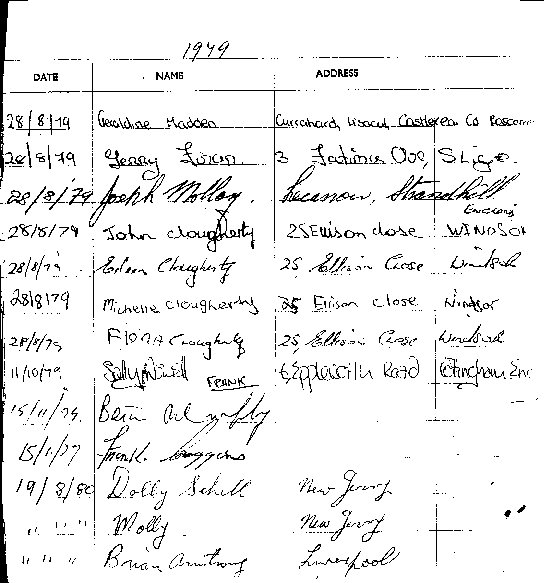 1979
DATE NAME ADDRESS
28/8/79 Geraldine Madden Currahard, Lisacul, Castlerea Co Roscom
28/8/79 Gerry 3 Fatima Ave, Sligo.
28/8/79 Joseph Molloy. Strandhill
28/8/79 John Clougherty 25 Ellison close WINDSOR
28/8/79 Eileen Clougherty 25 Ellison Close Windsor
28/8/79 Michelle Clougherty 25 Ellison Close Windsor
28/8/79 FIONA Clougherty 25 Ellison Close Windsor
11/10/79. Sally FRANK Road
15/11/79. Brian
15/1/77 Frank
19/8/80 Dolly Schell New Jersey
" " " Molly New Jersey
" " " Brian Armstrong Liverpool